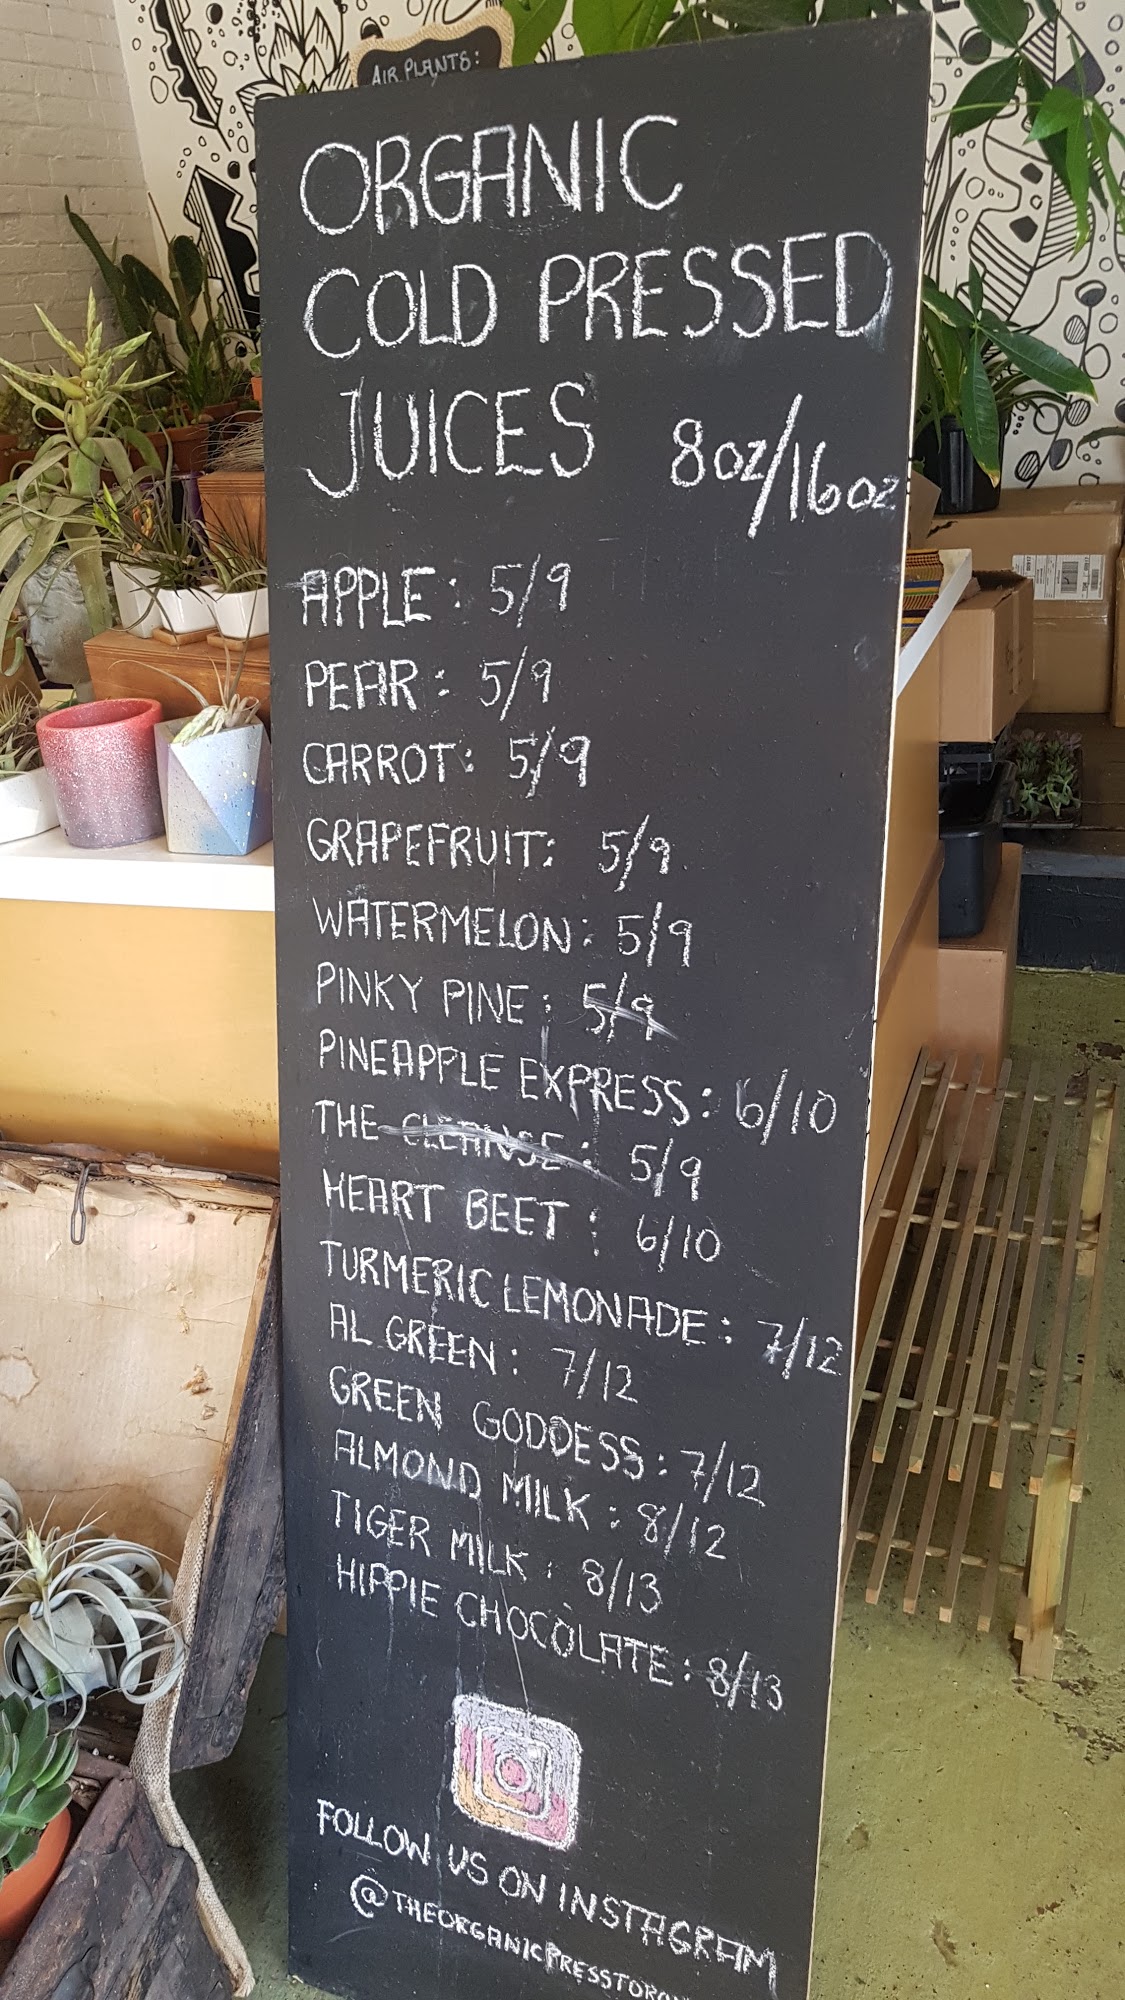 AIR PLANTS:
ORGANIC
COLD PRESSED
JUICES 8oz/16oz
APPLE: 5/9
PEAR: 5/9
CARROT: 5/9
GRAPEFRUIT: 5/9
WATERMELON: 5/9
PINKY PINE: 5/9
PINEAPPLE EXPRESS: 6/10
THE CLEANSE: 5/9
HEART BEET: 6/10
TURMERIC LEMONADE: 7/12
AL GREEN: 7/12
GREEN GODDESS: 7/12
ALMOND MILK: 8/12
TIGER MILK: 8/13
HIPPIE CHOCOLATE: 8/13
FOLLOW US ON INSTAGRAM
@THEORGANICPRESSTORON